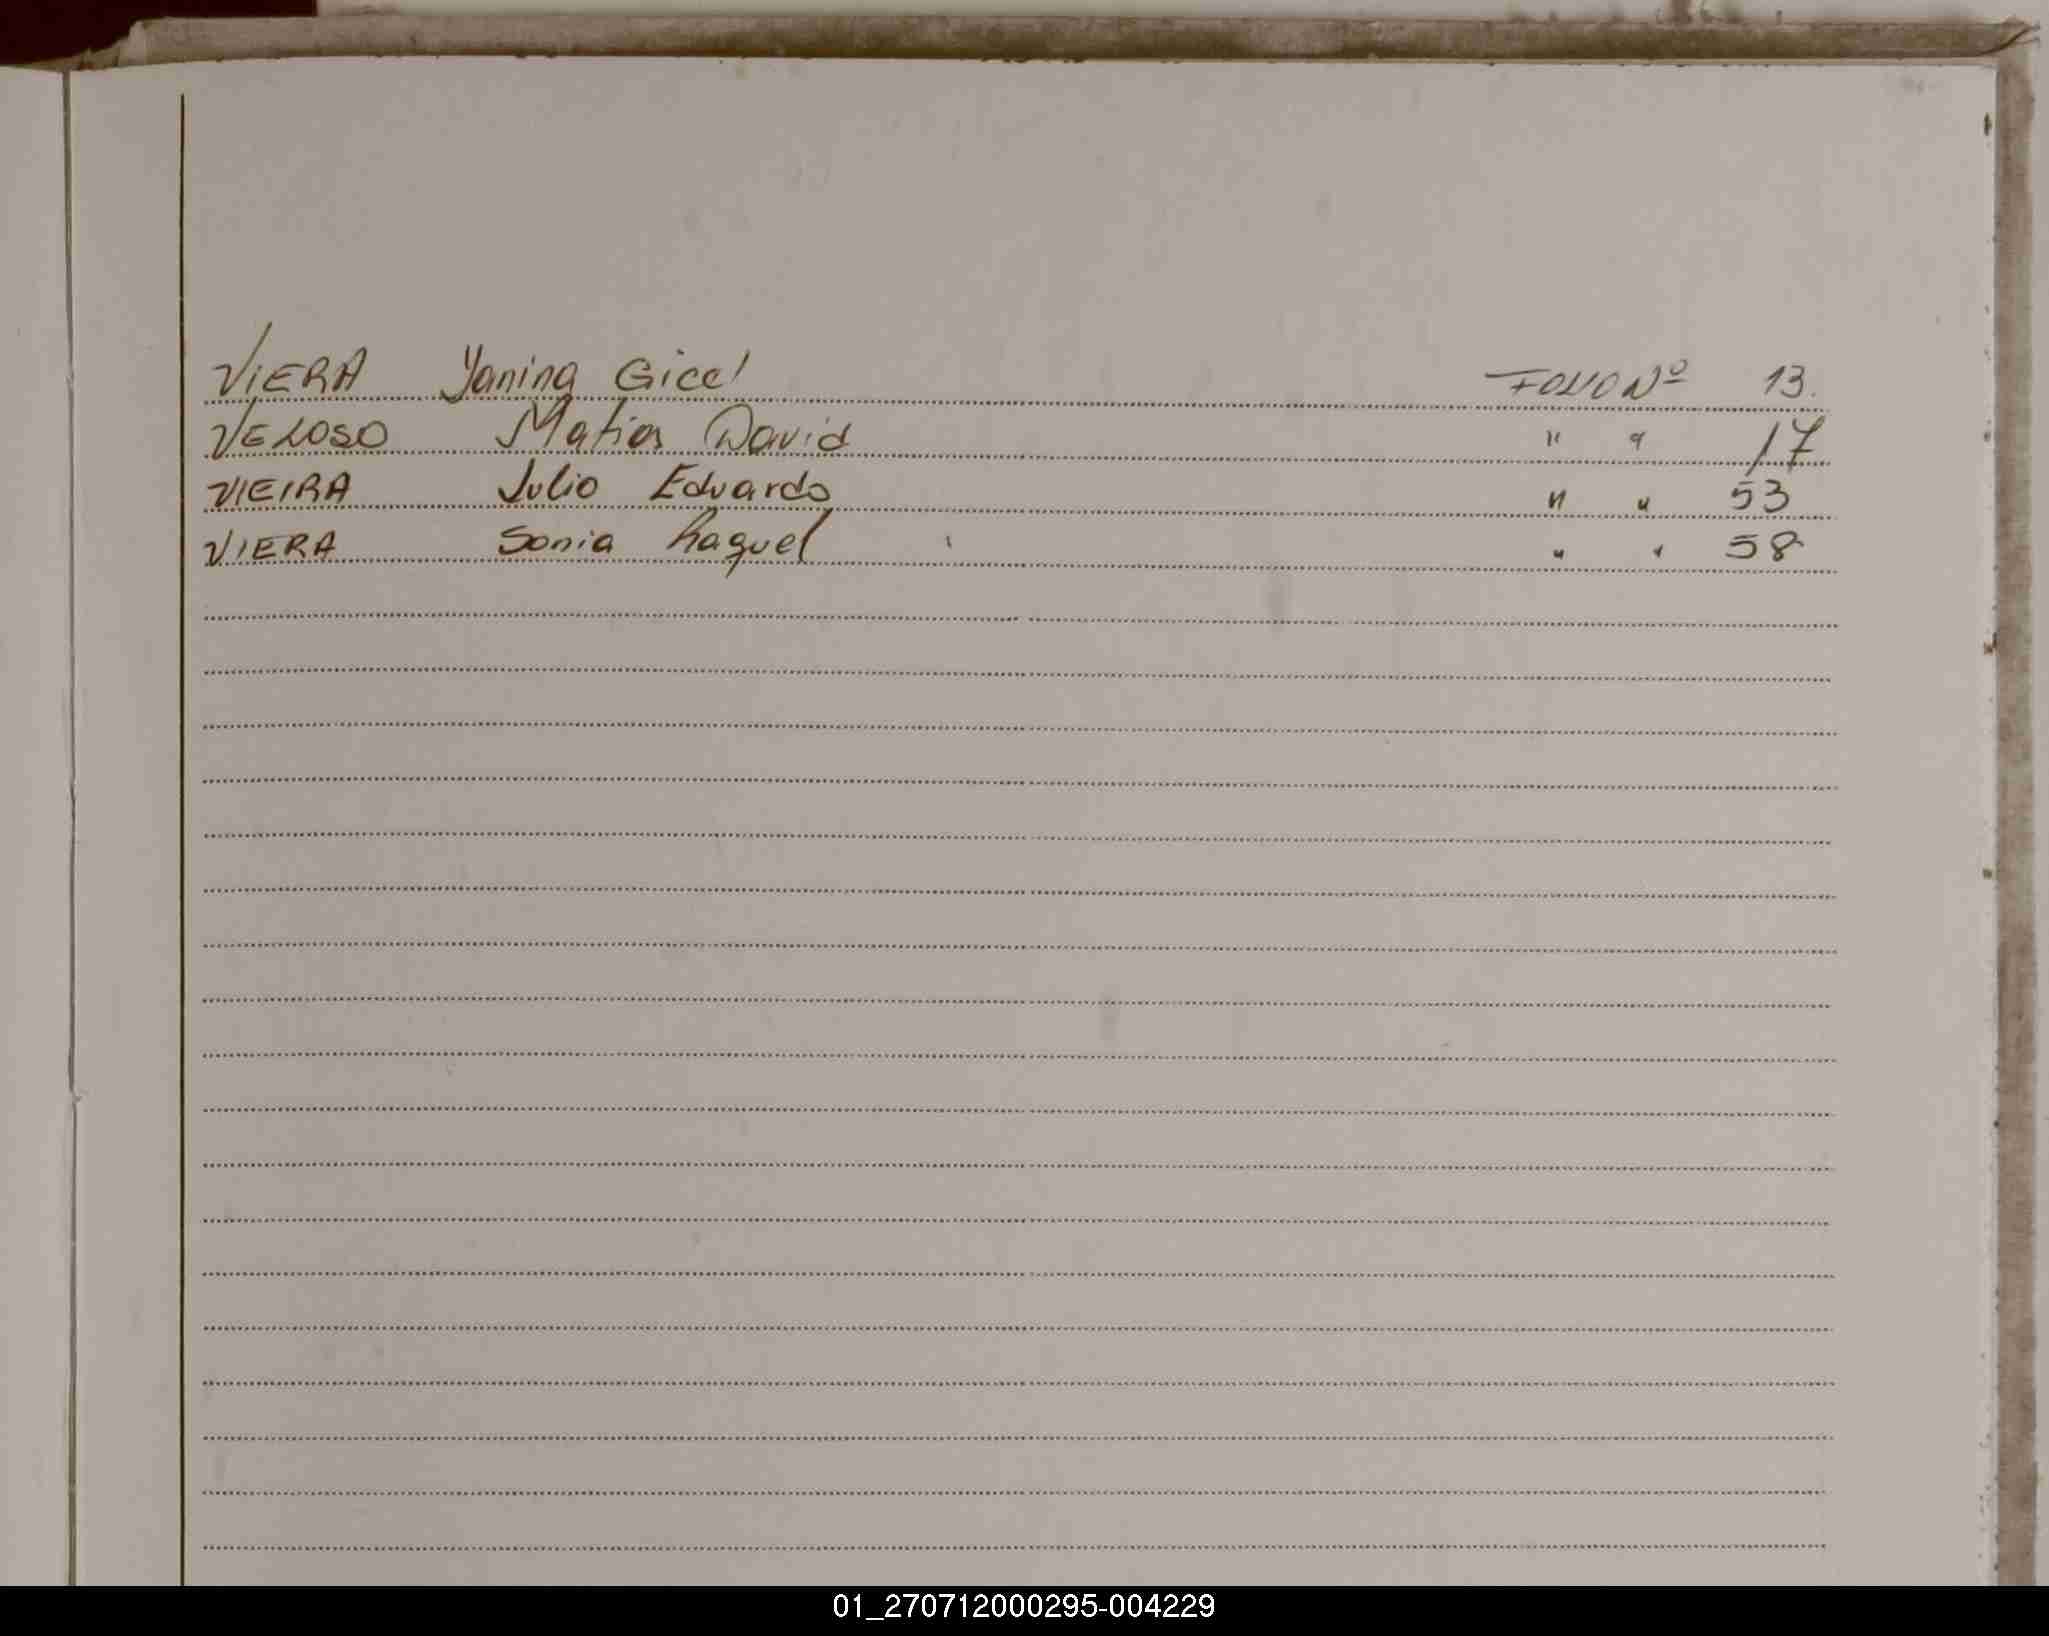 VIERA Yanina Gicel FOLIO Nº 13.
VELOSO Matias David " " 17
VIEIRA Julio Eduardo " " 53
VIERA Sonia Raquel " " 58
01_270712000295-004229